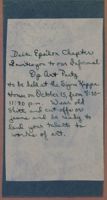 Delta Epsilon Chapter
invites you to our Informal
Op Art Party
to be held at the Sigma Kappa
House on October 15, from 8:30-
11:30 p.m. Wear old
shirts and cut off or
jeans and be ready to
lend your talents to
works of art.